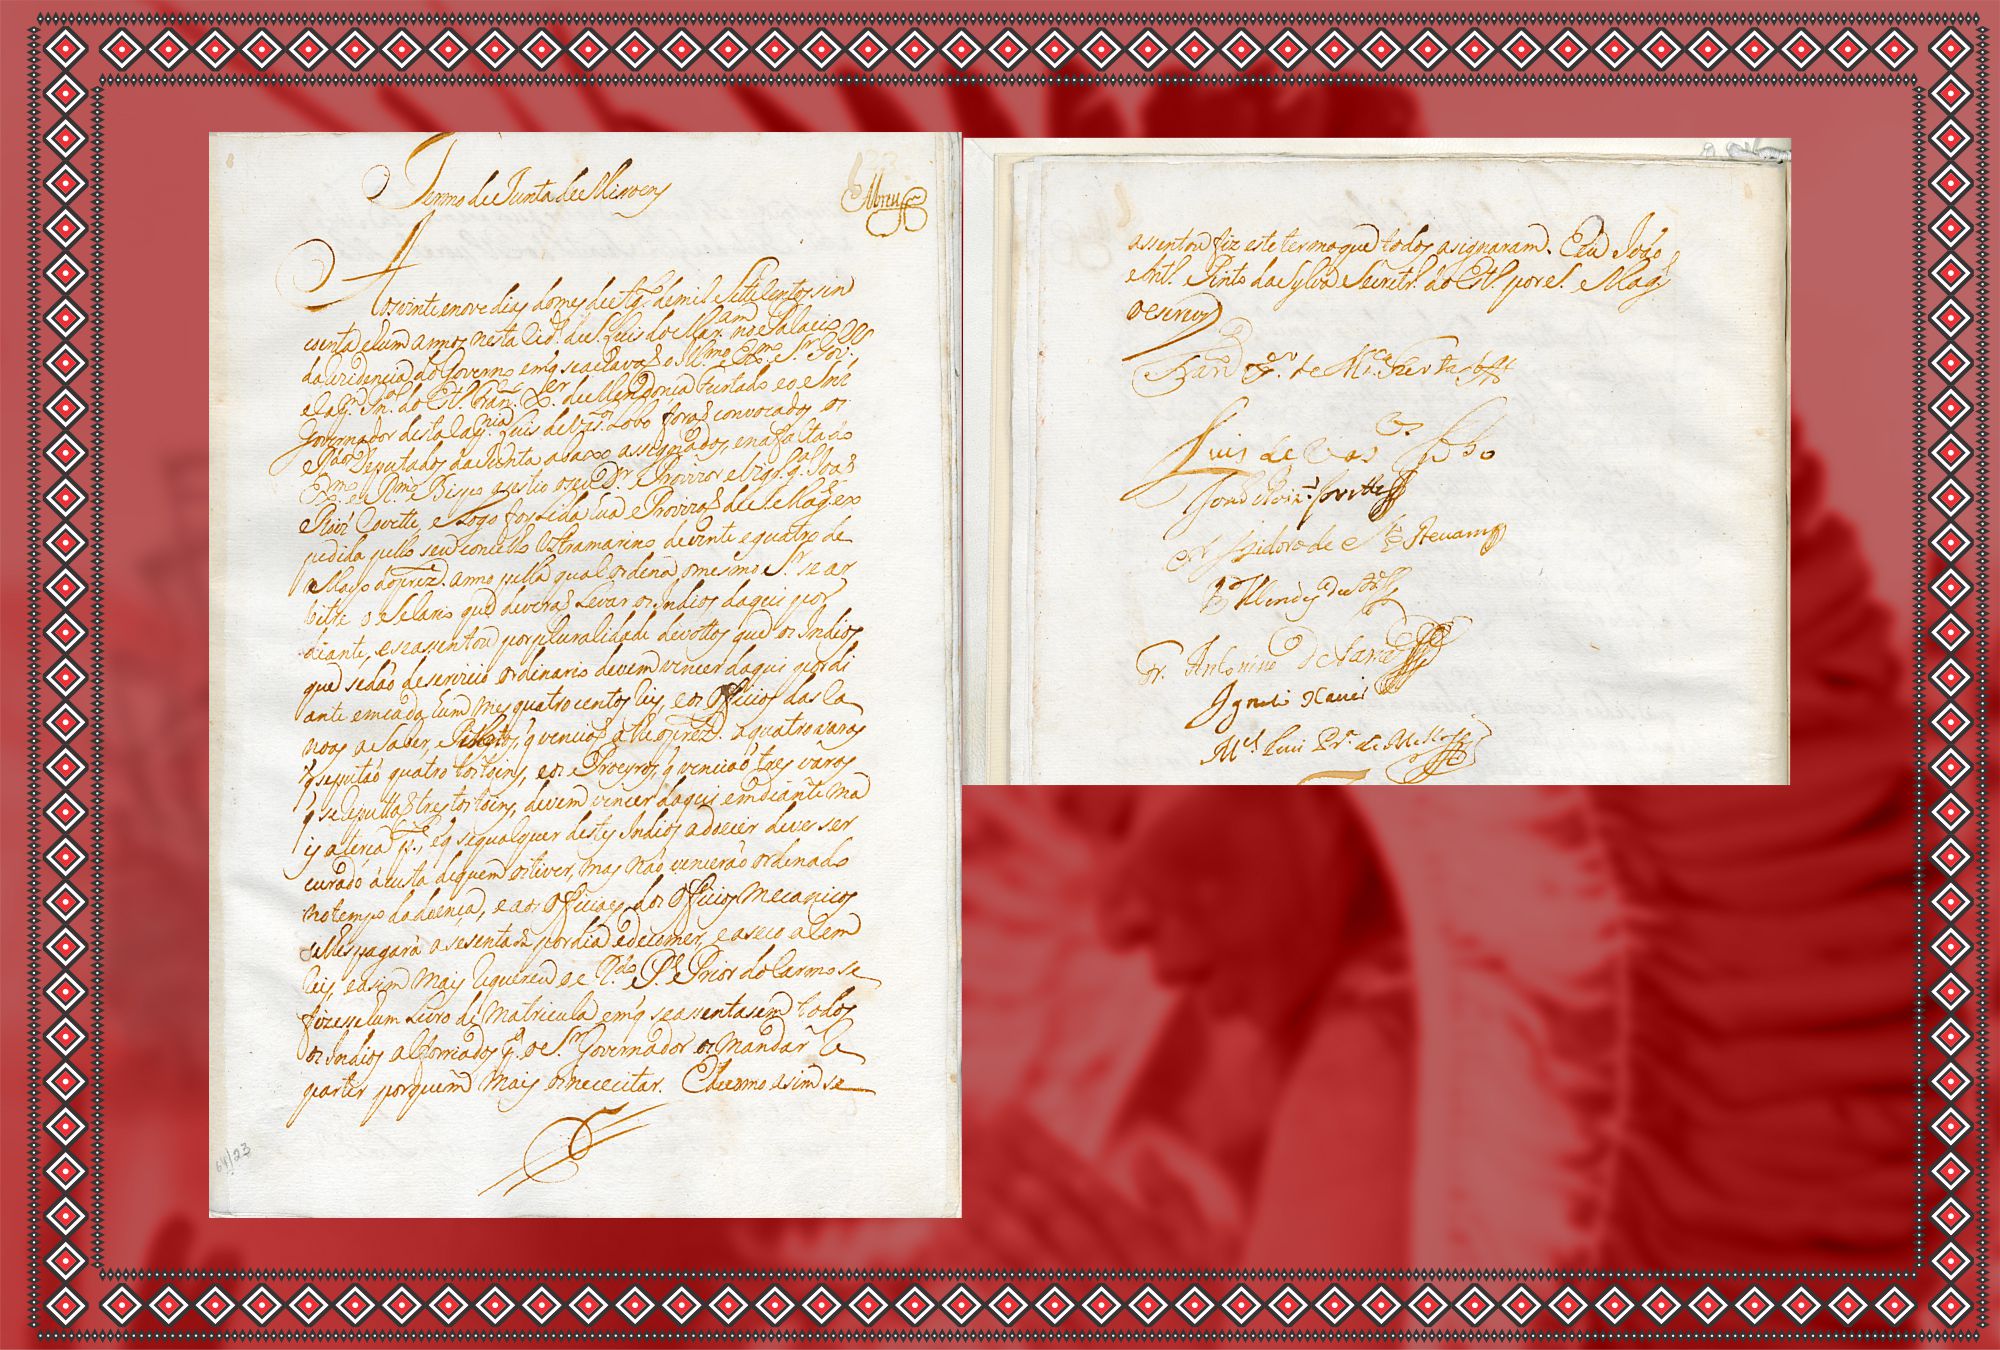 Termo de Junta de Missoens
Abreu
Aos vinte enove dias domes de Ag.to demil Sette Centos sin
coenta ehum annos nesta Cid.e de S. Luis do Mar.am no Palacio
da rezidencia do Governo emq̃ seachava o Ill.mo Ex.mo Sr. Gov.or
eCap.m Gn.al do Est.o Fran.co X.er de Mendonca Furtado eo
Governador desta Cap.nia Luis de Vas.cos Lobo foraõ convocados os
Deputados da Junta abaxo assignados, enafalta do
Ex.mo e R.mo Bispo asestio oseu D.r Provizor eVig.ro g.al Joaõ
Roiz' Covette, e Logo foy Lida hua Provizaõ de S. Mag.e ex
pedida pello seu Concelho Ultramarino devinte equatro de
Mayo doprez.te anno pella qual ordena omesmo Sr. se ar
bitre o Selario que deveraõ Levar os Indios daqui por
diante, eseasentou porpluralidade devottos que os Indios
que sedaõ deservicio ordinario devem vencer daqui pordi
ante emcada hum mes quatrocentos reis, eos Officios das Ca
noas aSaber, Pillottos, q̃ venciaõ athe oprez.te a quatro varas
q̃ seputaõ quatro tostoins, eos Proeyros, q̃ venciaõ tres varas
q̃ se Reputtaõ tres tostoins, devem vencer daqui emdiante ma
is aterca p.te, eq̃ sequalquer destes Indios adoecer deve ser
curado àcusta dequem ostiver, mas naõ venceraõ ordenado
notempo dadoença, eaos Officiaes dos Officios Mecanicos
selhes pagará aSesenta rs̃ pordia edecomer, easeco aSem
reis, easim mais Requereu o R.do P.e Prior do Carmo se
fizesse hum Livro de Matricula emq̃ seasentasem todos
os Indios alforriados p.a o Sr. Governador os mandar Re
partir porquem mais os nececitar. Edecomo asim se
64/23
assentou fiz este termo que todos asignaram. Eeu Joáo
Ant.o Pinto da Sylva Secretr.o do Est.o por S. Mag.e
o escrevy
Fran.co X.er de M.ca Furtado
Luis de Vas.cos Lobo
Joaõ Roiz' Covette
Fr. Izidoro de S.to Estevam
Fr. Antonino
Ignacio Xavier
M.el Luis Pr.a de Mello